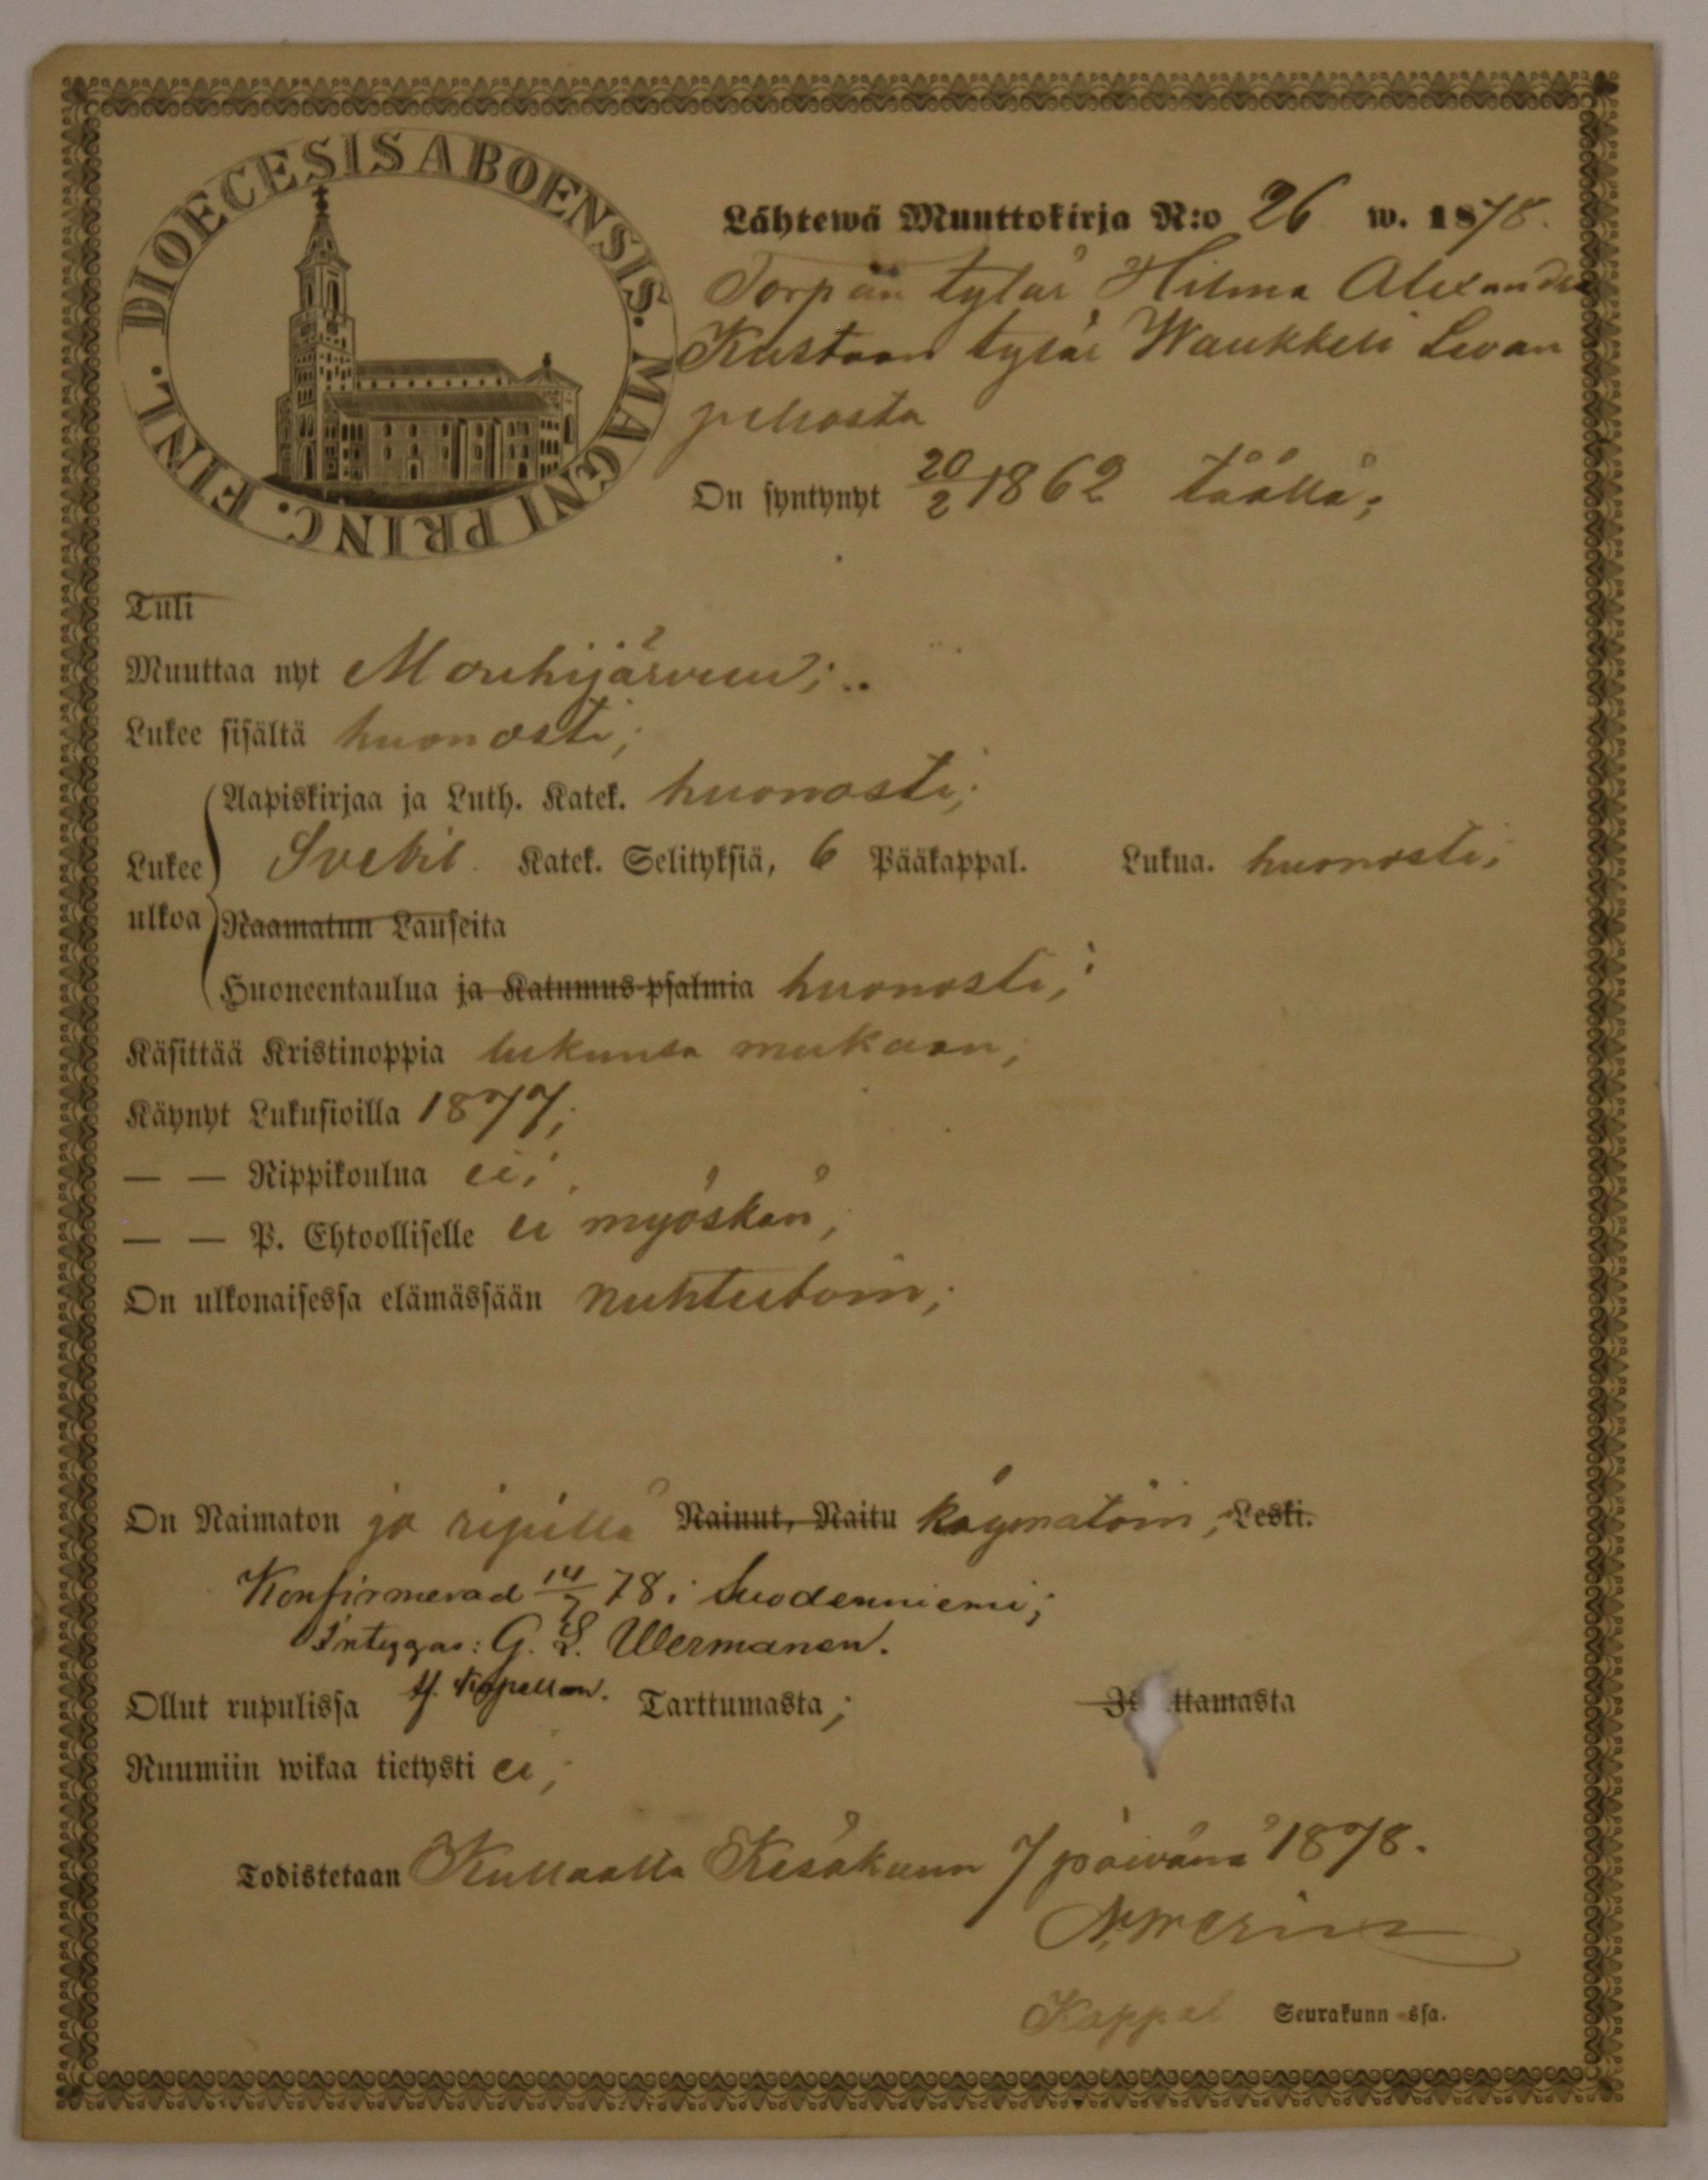 DIOECESIS ABOENSIS. MAGNI PRINC. FINL.
Lähtewä Muuttokirja N:o 26 w. 1878.
Torpan tytär Hilma Alexandra
Kustaan tytär Waukkeli Levan
pelhosta
On syntynyt 20/2 1862 täällä;
Tuli
Muuttaa nyt Mouhijärveen;
Lukee sisältä huonosti;
Aapiskirjaa ja Luth. Katek. huonosti;
Lukee Svebil. Katek. Selityksiä, 6 Pääkappal. Lukua. huonosti;
ulkoa Raamatun Lauseita
Huoneentaulua ja Katumus-psalmia huonosti;
Käsittää Kristinoppia lukunsa mukaan;
Käynyt Lukusioilla 1877;
— — Rippikoulua ei;
— — P. Ehtoolliselle ei myöskän;
On ulkonaisessa elämässään nuhteetoin;
On Naimaton ja ripillä Nainut, Naitu käymätöin; Leski.
Konfirmerad 14/7 78 i Suodenniemi;
Intygar: G. L. Wermanen.
tf. Kapellan.
Ollut rupulissa Tarttumasta; ttamasta
Ruumiin wikaa tietysti ei;
Todistetaan Kullaalla Kesäkuun 7 päivänä 1878.
Kappal Seurakunn-ssa.